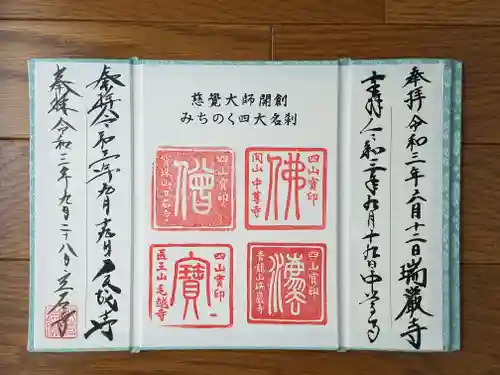 奉拝 令和三年六月十二日 瑞巌寺
奉拝 令和三年九月十九日 中尊寺
慈覺大師開創
みちのく四大名刹
四山寳印
佛
関山 中尊寺
四山寳印
僧
四山寳印
青龍山瑞巌寺
四山寳印
寳
医王山 毛越寺
奉拝 令和三年九月十九日 毛越寺
奉拝 令和三年九月二十八日 立石寺